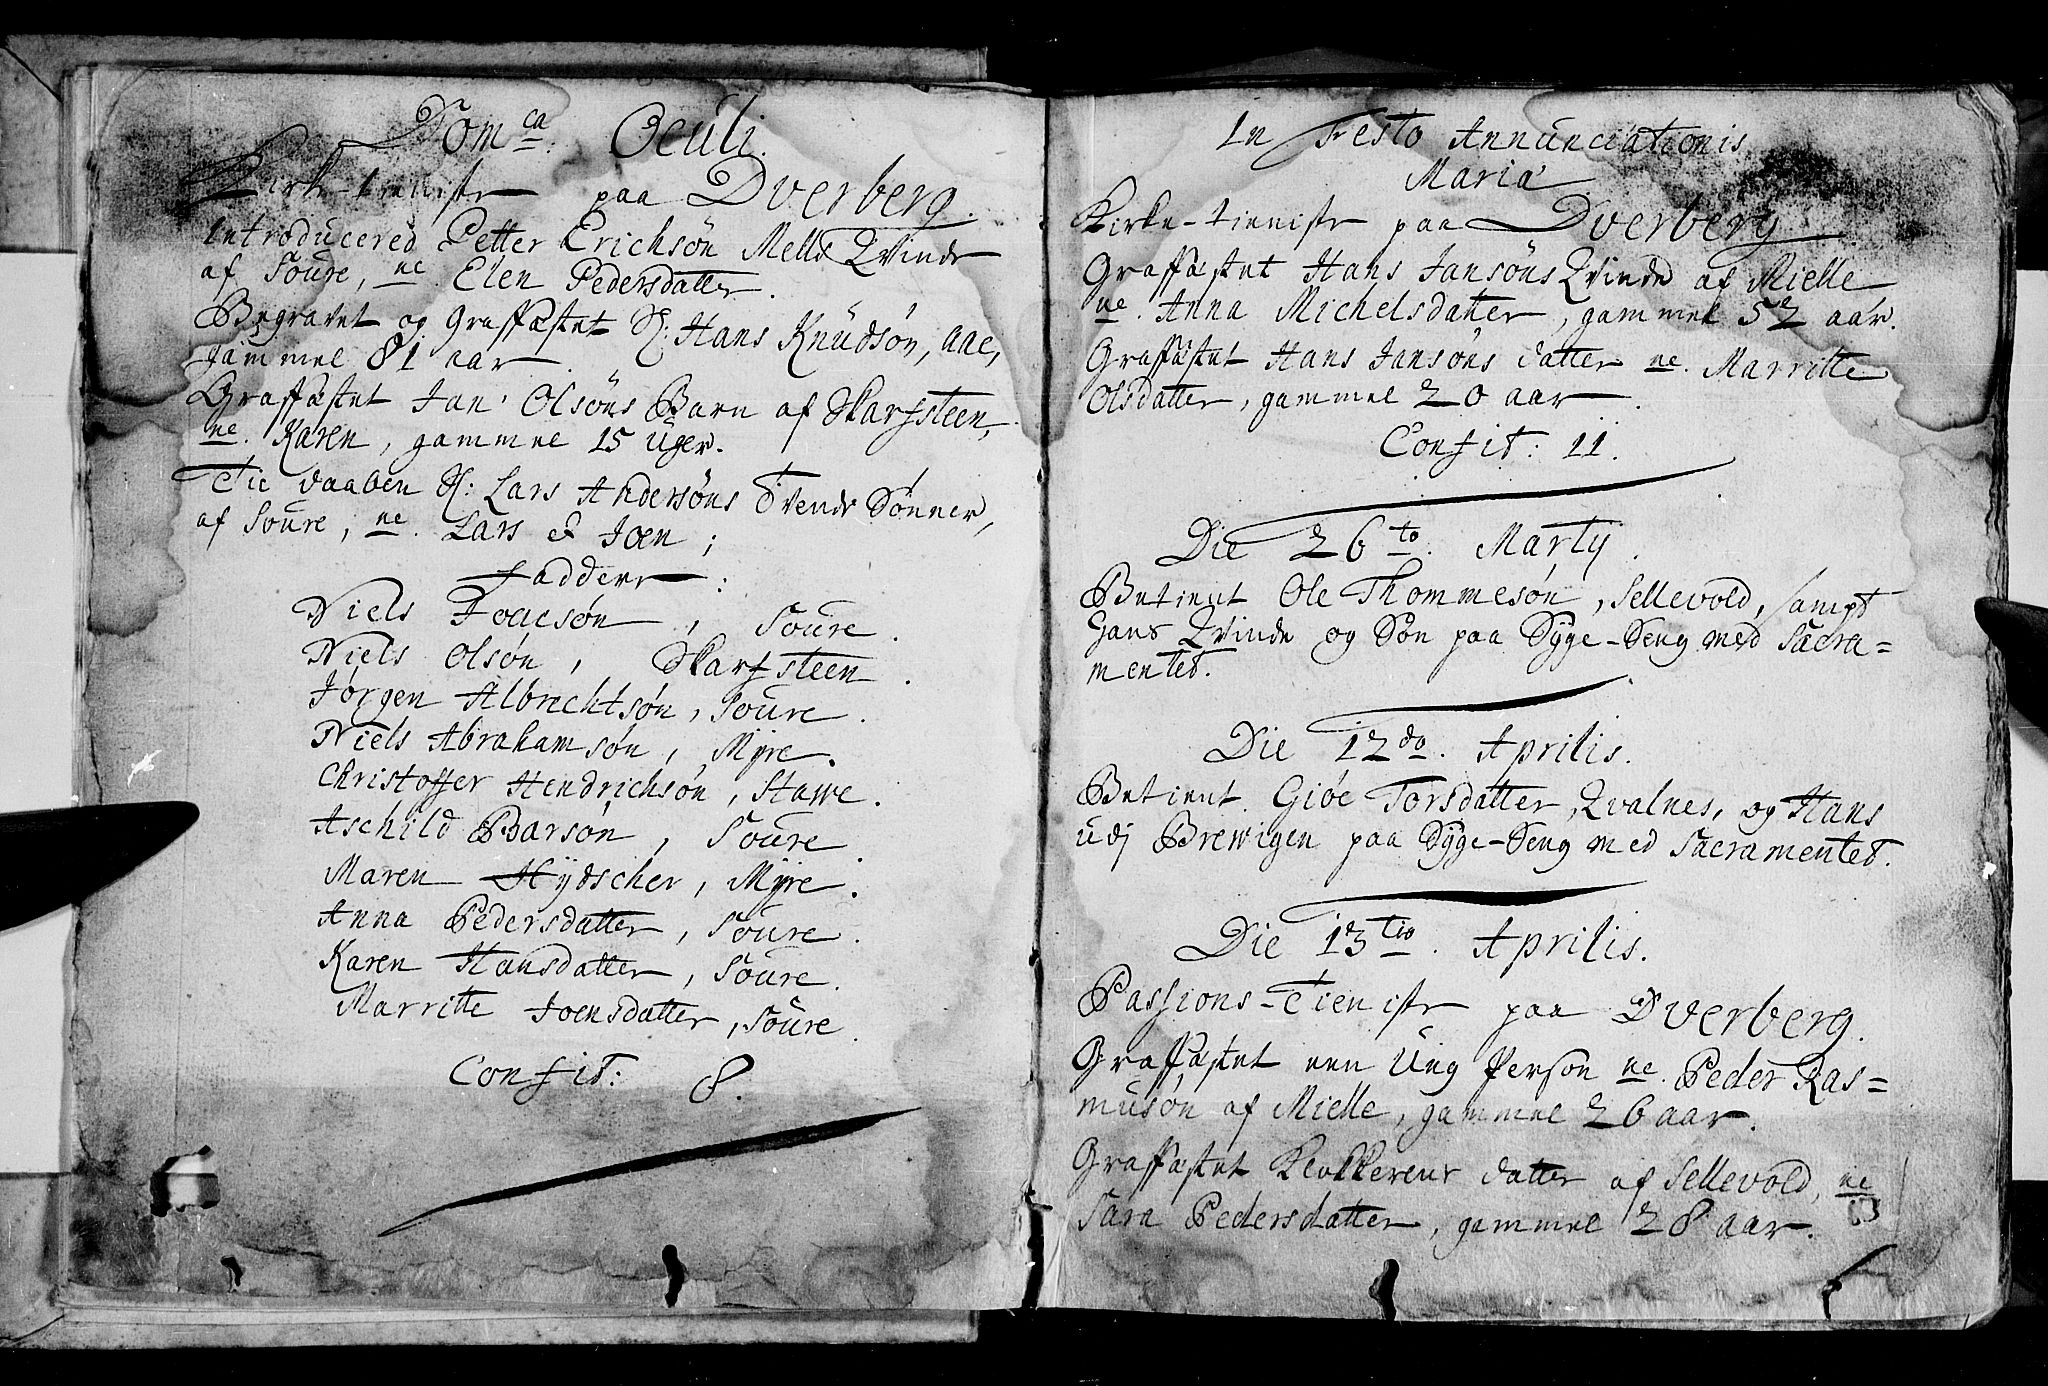 Dom.ca: Oculi.
Kirke-tieniste paa Dverberg.
Introducered Petter Erichsøn Mells Qvinde
af Soure, ne. Elen Pedersdatter.
Begravet og Graffæstet Sl: Hans Knudsøn, aae,
gammel 81 aar.
Graffæstet Jan Olsøns Barn af Skarfsteen,
ne. Karen, gammel 15 Uger.
Til daaben H: Lars Andersøns Tvende Sønner,
af Soure, ne. Lars & Joen;
Faddere:
Niels Joensøn, Soure.
Niels Olsøn, Skarfsteen.
Jørgen Albrechtsøn, Soure.
Niels Abrahamsøn, Myre.
Christoffer Hendrichsøn, Stawe.
Aschild Barsøn, Soure.
Maren Hydscher, Myre.
Anna Pedersdatter, Soure.
Karen Hansdatter, Soure.
Marritte Joensdatter, Soure.
Confit: 8.
In Festo Annunciationis
Maria
Kirke-tieniste paa Dverberg.
Graffæstet Hans Jansøns Qvinde af Mielle
ne. Anna Michelsdatter, gammel 52 aar.
Graffæstet Hans Jansøns datter ne. Marritte
Olsdatter, gammel 20 aar.
Confit: 11.
Die 26to. Martij.
Betient Ole Thommesøn, Sellevold, sampt
hans Qvinde og Søn paa Syge-Seng med Sacra=
mentet.
Die 12do. Aprilis.
Betient Gióe Torsdatter, Qvalnes, og Hans
udj Brewigen paa Syge-Seng med Sacramentet.
Die 13tio. Aprilis.
Passions-Tieniste paa Dverberg.
Graffæstet een Ung Person ne. Peder Ras=
musøn af Mielle, gammel 26 aar.
Graffæstet Klokkerens datter af Sellevold, ne
Sara Pedersdatter, gammel 28 aar.